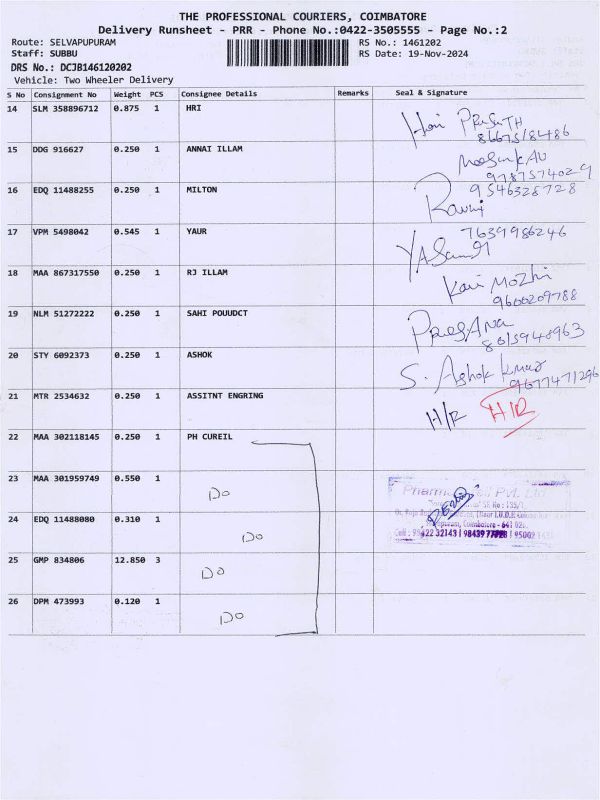 THE PROFESSIONAL COURIERS, COIMBATORE
Delivery Runsheet - PRR - Phone No.:0422-3505555 - Page No.:2
Route: SELVAPUPURAM RS No.: 1461202
Staff: SUBBU RS Date: 19-Nov-2024
DRS No.: DCJB146120202
Vehicle: Two Wheeler Delivery
S No Consignment No Weight PCS Consignee Details Remarks Seal & Signature
14 SLM 358896712 0.875 1 HRI
15 DDG 916627 0.250 1 ANNAI ILLAM
9787574029
16 EDQ 11488255 0.250 1 MILTON 9546328728
17 VPM 5498042 0.545 1 YAUR 7639986246
18 MAA 867317550 0.250 1 RJ ILLAM Kavi Mozhi
9600209788
19 NLM 51272222 0.250 1 SAHI POUUDCT
8015948963
20 STY 6092373 0.250 1 ASHOK S. Ashok Kumar
9677471296
21 MTR 2534632 0.250 1 ASSITNT ENGRING H/R H/R
22 MAA 302118145 0.250 1 PH CUREIL
23 MAA 301959749 0.550 1 Do
Pvt. Ltd
24 EDQ 11488080 0.310 1 Do
Coimbatore - 641 026
25 GMP 834806 12.850 3 Do
26 DPM 473993 0.120 1 Do